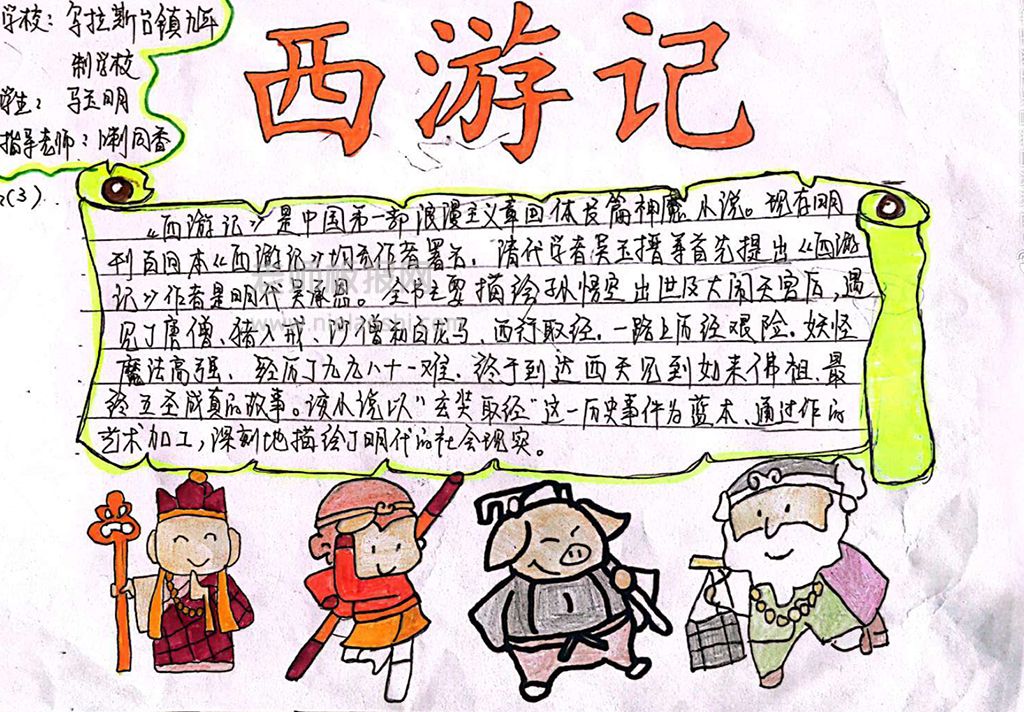 西游记
学校：乌拉斯台镇九年
制学校
学生：马玉明
指导老师：
2(3)
《西游记》是中国第一部浪漫主义章回体长篇神魔小说。现存明
刊百回本《西游记》均无作者署名，清代学者吴玉搢等首先提出《西游
记》作者是明代吴承恩。全书主要描绘孙悟空出世及大闹天宫后，遇
见了唐僧、猪八戒、沙僧和白龙马，西行取经，一路上历经艰险，妖怪
魔法高强，经历了九九八十一难，终于到达西天见到如来佛祖，最
终五圣成真的故事。该小说以“玄奘取经”这一历史事件为蓝本，通过作的
艺术加工，深刻地描绘了明代的社会现实。
老师板报网